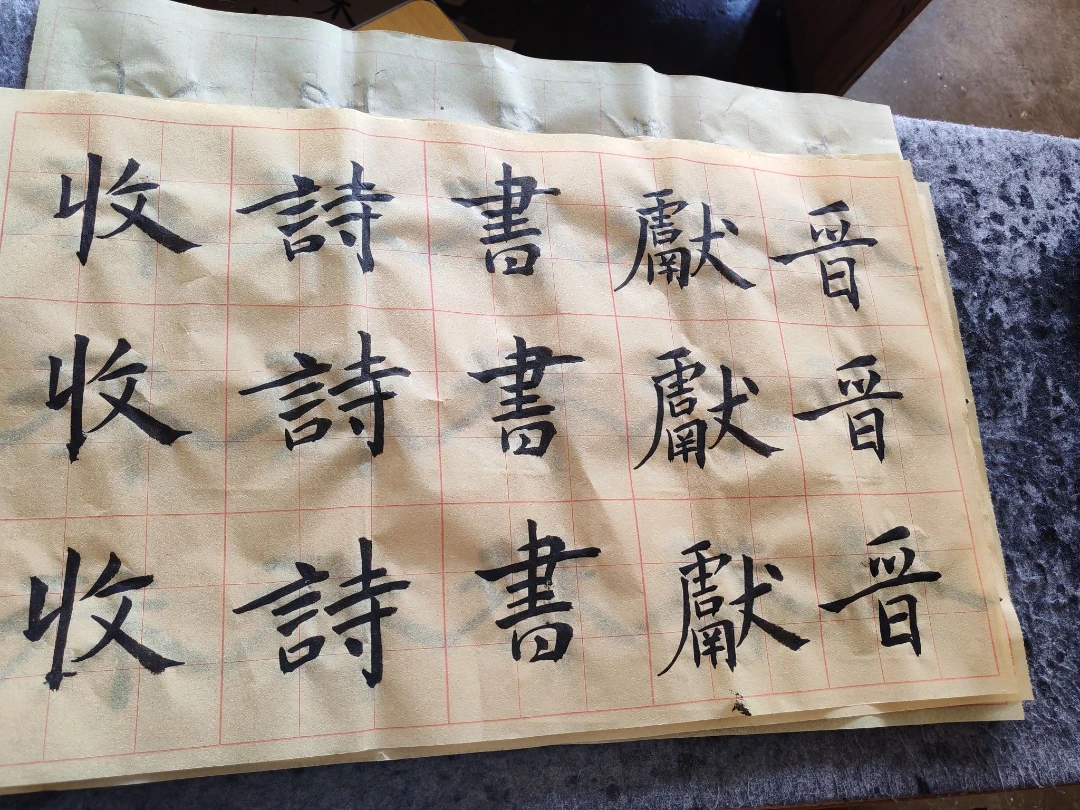 收詩書獻晉
收詩書獻晉
收詩書獻晉